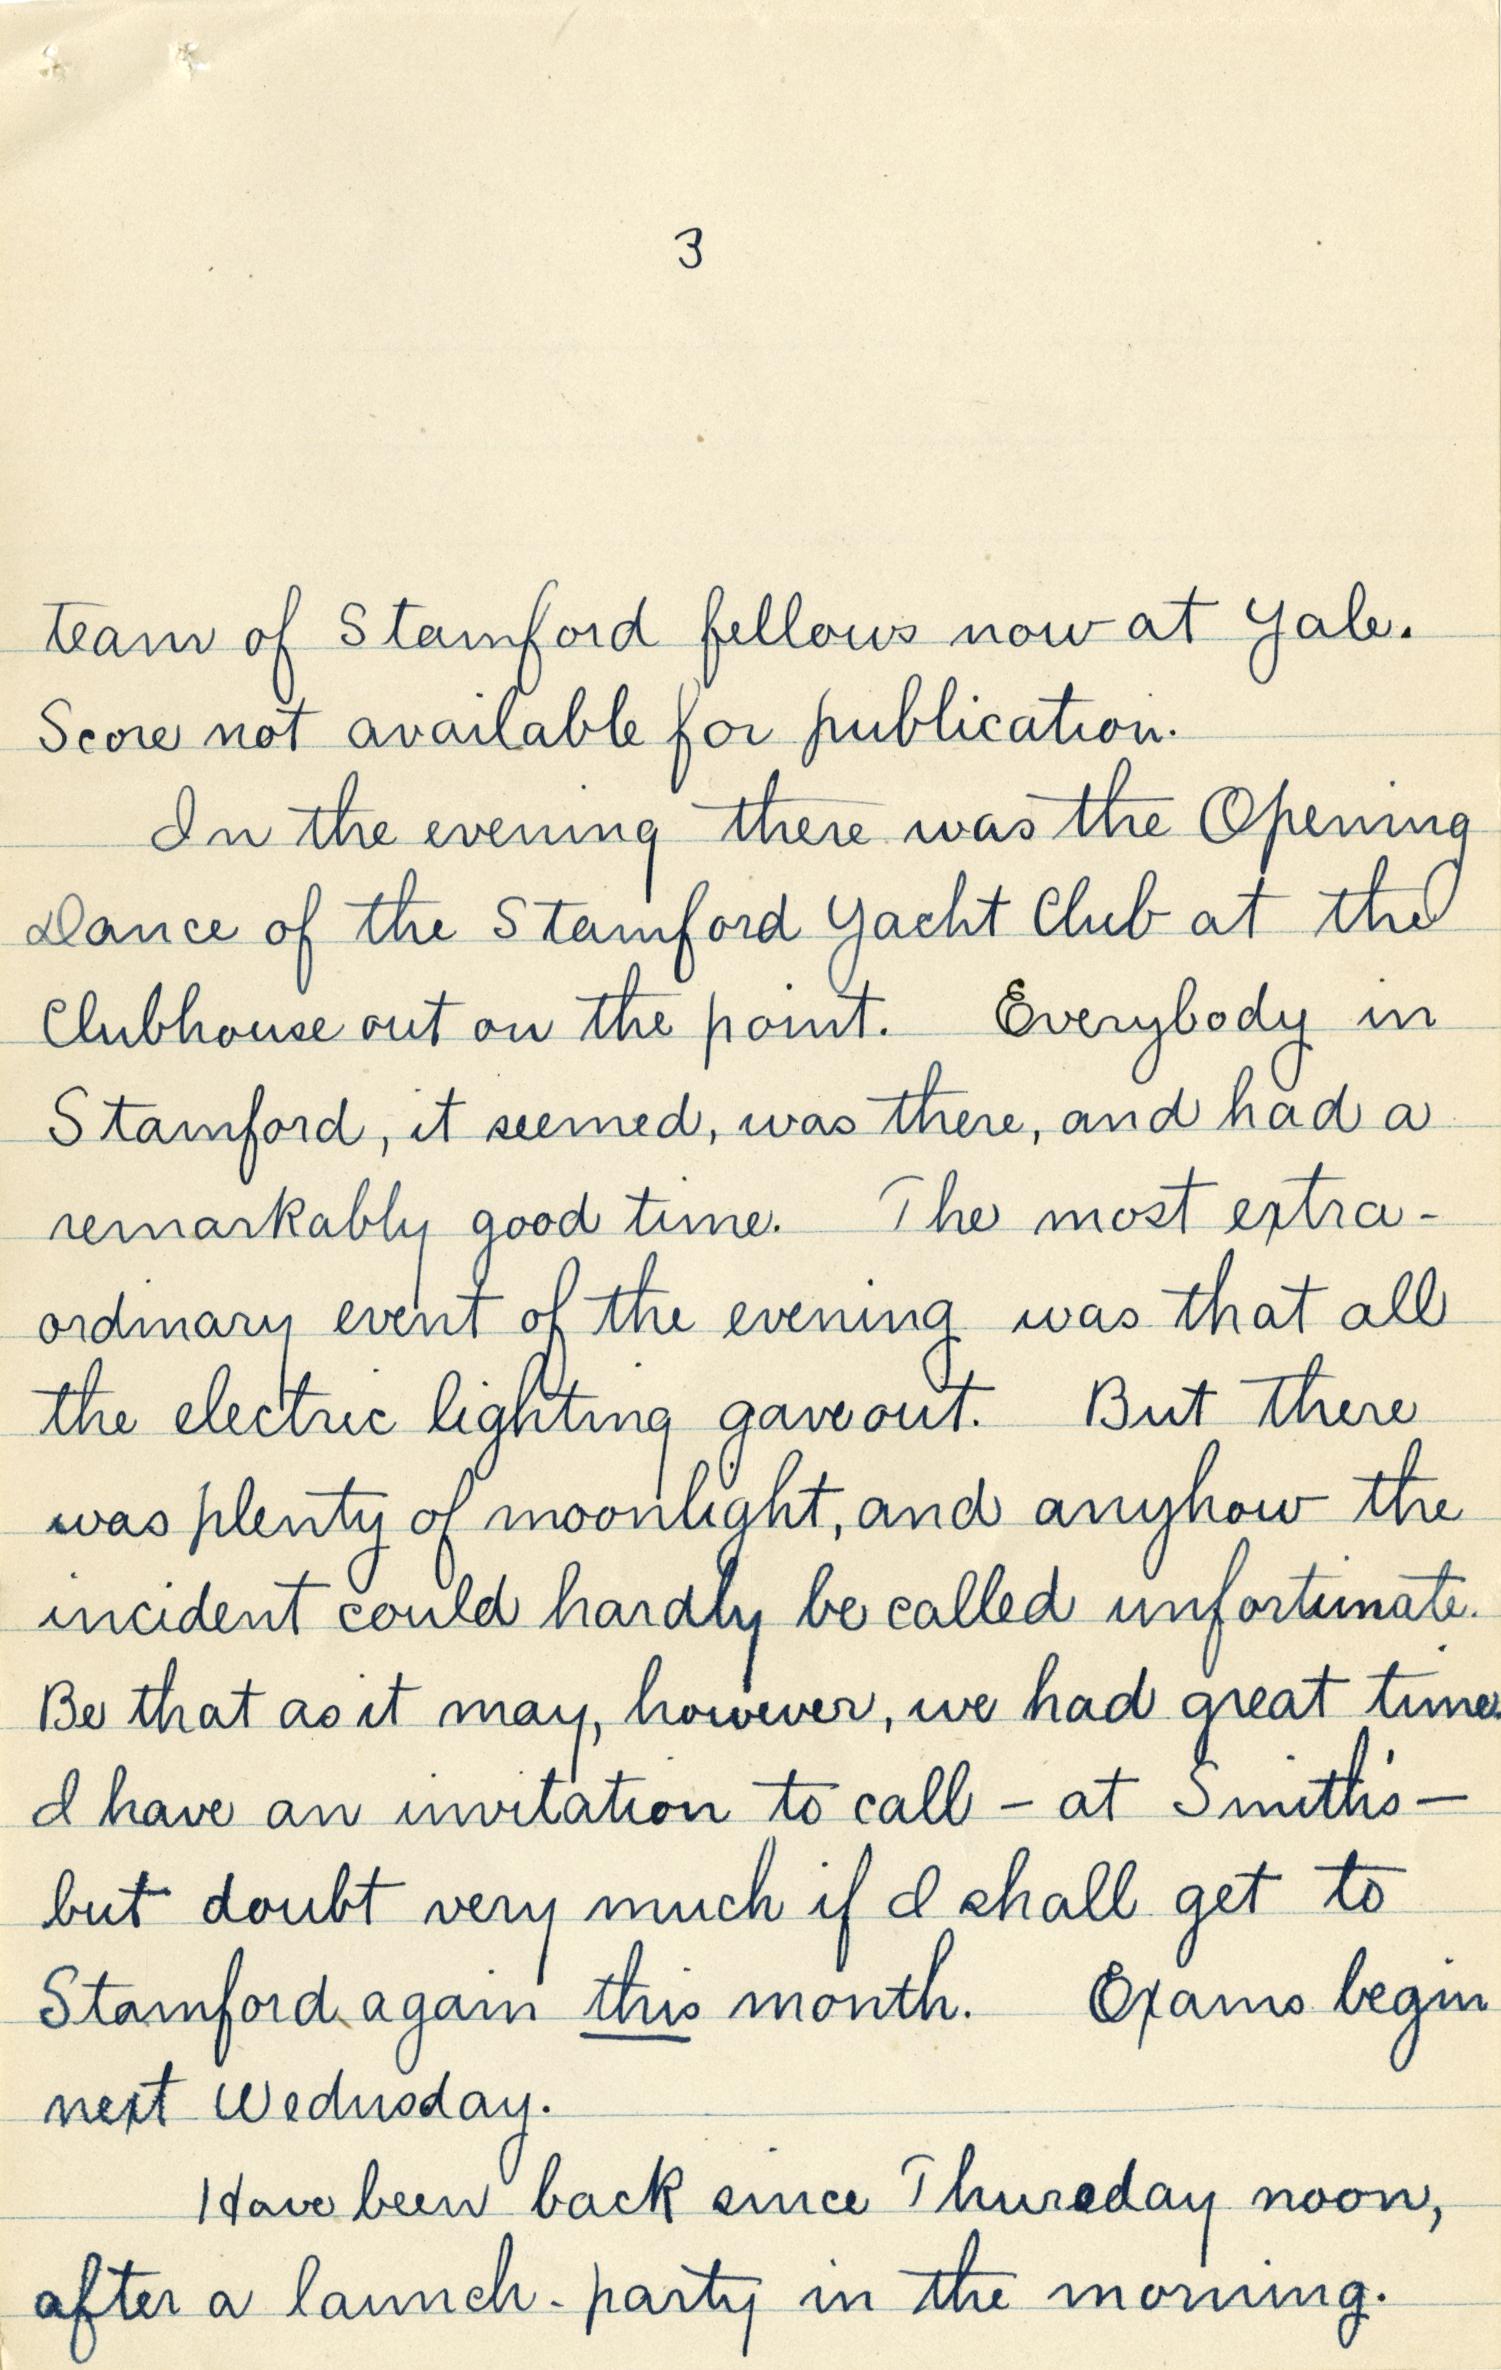 3
team of Stamford fellows now at Yale.
Score not available for publication.
In the evening there was the Opening
Dance of the Stamford Yacht Club at the
Clubhouse out on the point. Everybody in
Stamford, it seemed, was there, and had a
remarkably good time. The most extra-
ordinary event of the evening was that all
the electric lighting gave out. But there
was plenty of moonlight, and anyhow the
incident could hardly be called unfortunate.
Be that as it may, however, we had great time.
I have an invitation to call – at Smith's –
but doubt very much if I shall get to
Stamford again this month. Exams begin
next Wednsday.
Have been back since Thursday noon,
after a launch-party in the morning.